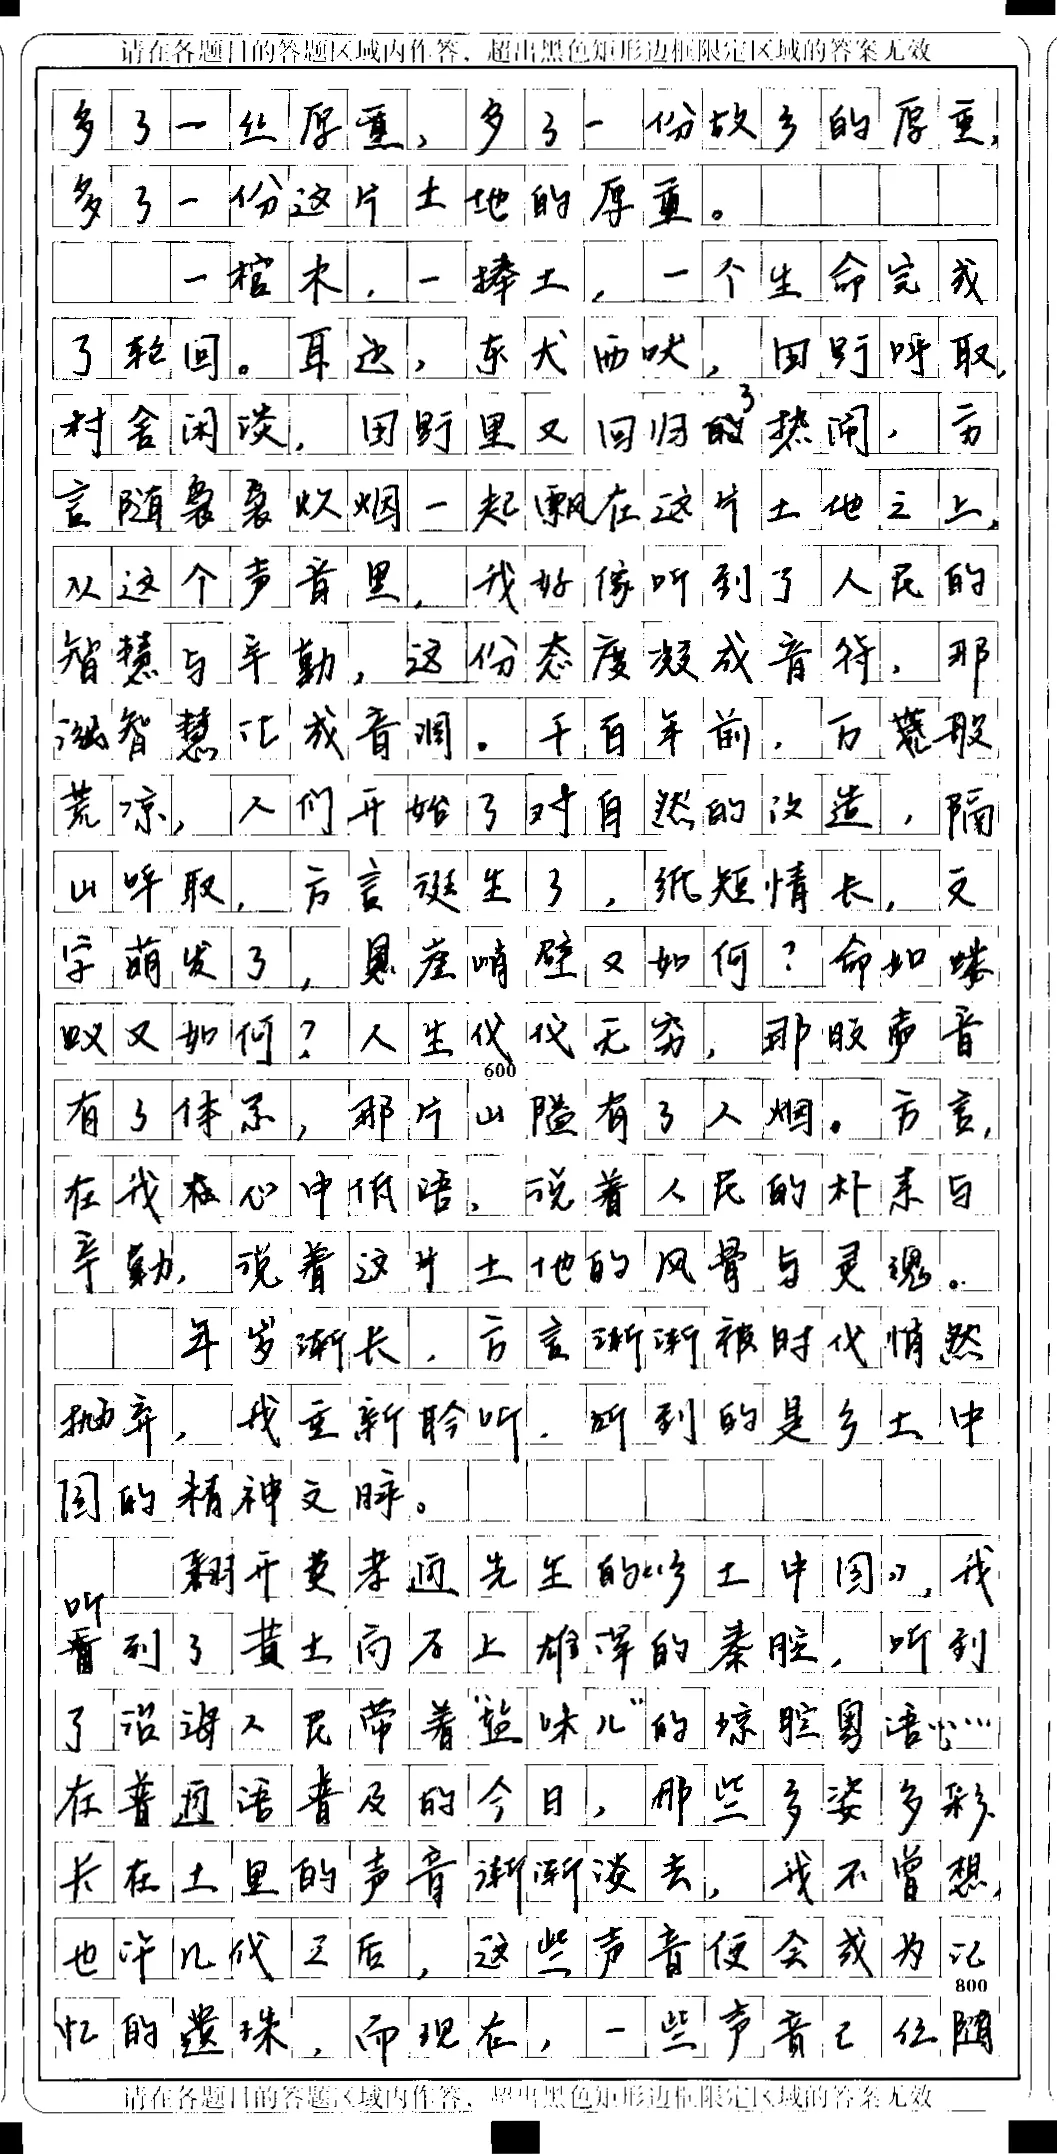 请在各题目的答题区域内作答，超出黑色矩形边框限定区域的答案无效
多了一丝厚重，多了一份故乡的厚重，
多了一份这片土地的厚重。
一棺木，一捧土，一个生命完成
了轮回。耳边，东犬西吠，田野呼取，
村舍闲谈，田野里又回归了热闹，方
言随袅袅炊烟一起飘在这片土地之上，
从这个声音里，我好像听到了人民的
智慧与辛勤，这份态度凝成音符，那
智慧化成音调。千百年前，万般
荒凉，人们开始了对自然的改造，隔
山呼取，方言诞生了，纸短情长，文
字萌发了，悬崖峭壁又如何？命如蝼
蚁又如何？人生代代无穷，那股声音
600
有了体系，那片山隘有了人烟。方言，
在我在心中低语，说着人民的朴素与
辛勤，说着这片土地的风骨与灵魂。
年岁渐长，方言渐渐被时代悄然
抛弃，我重新聆听，听到的是乡土中
国的精神文脉。
翻开费孝通先生的《乡土中国》，我
听到了黄土高石上雄浑的秦腔，听到
了沿海人民带着“盐味儿”的琼腔粤语……
在普通话普及的今日，那些多姿多彩
长在土里的声音渐渐淡去，我不曾想，
也许几代之后，这些声音便会成为记
800
忆的遗珠，而现在，一些声音已经随
请在各题目的答题区域内作答，超出黑色矩形边框限定区域的答案无效